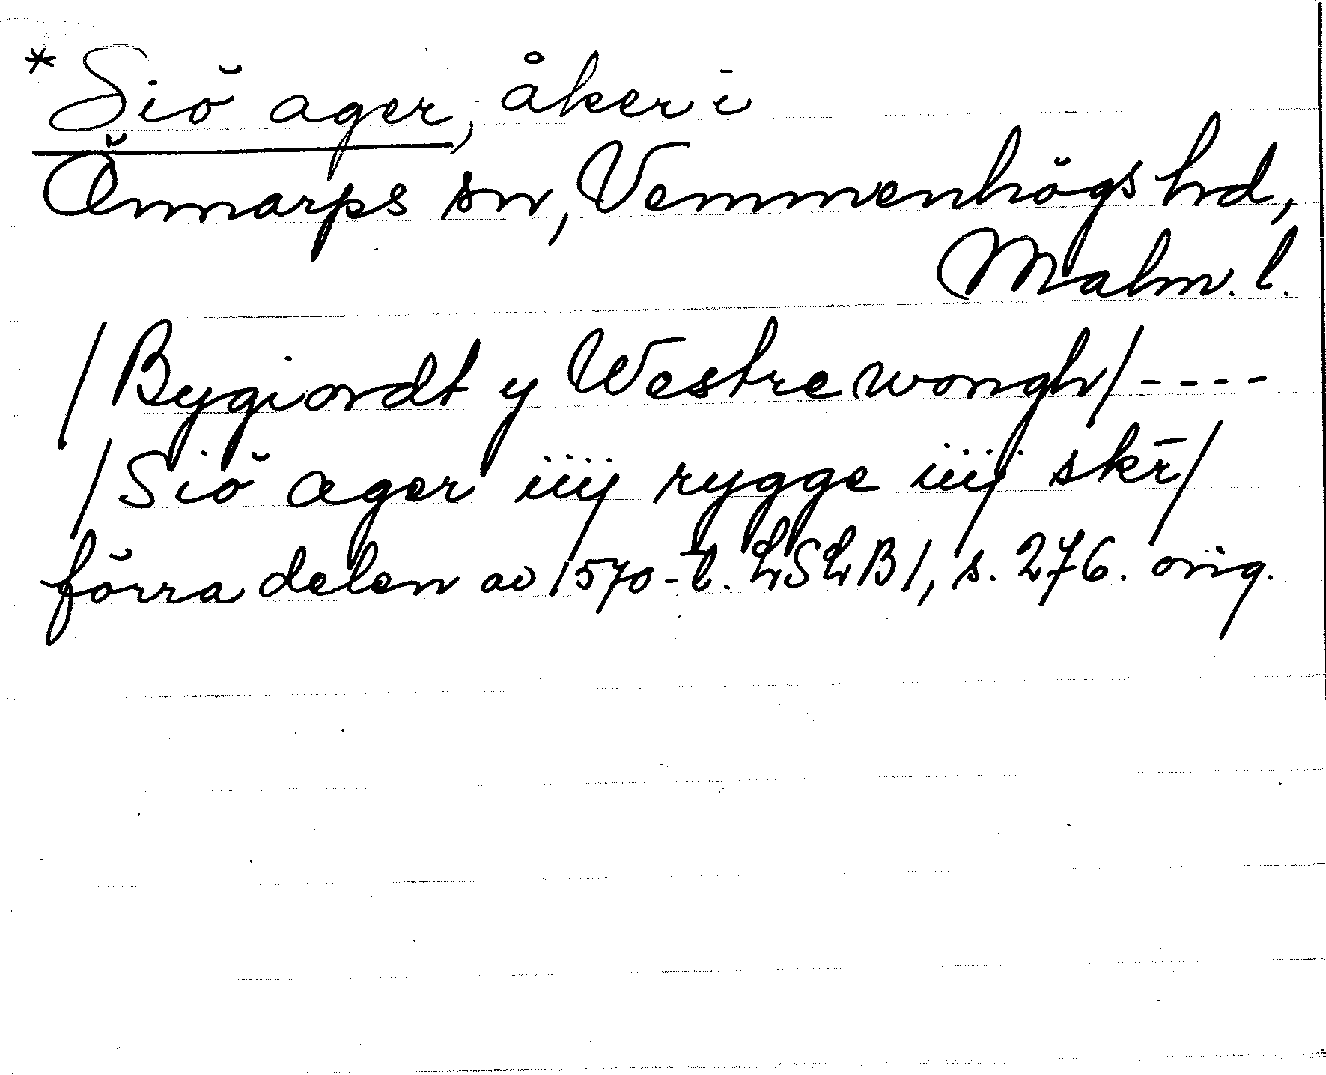 * Siö ager, åker i
Önnarps sn, Vemmenhögs hd,
Malm. l.
/Bygiordt y Westre wongh/ - - - -
/Siö ager iiij rygge iiij skr̄/
förra delen av 1570-t. LSLB1, s. 276. orig.